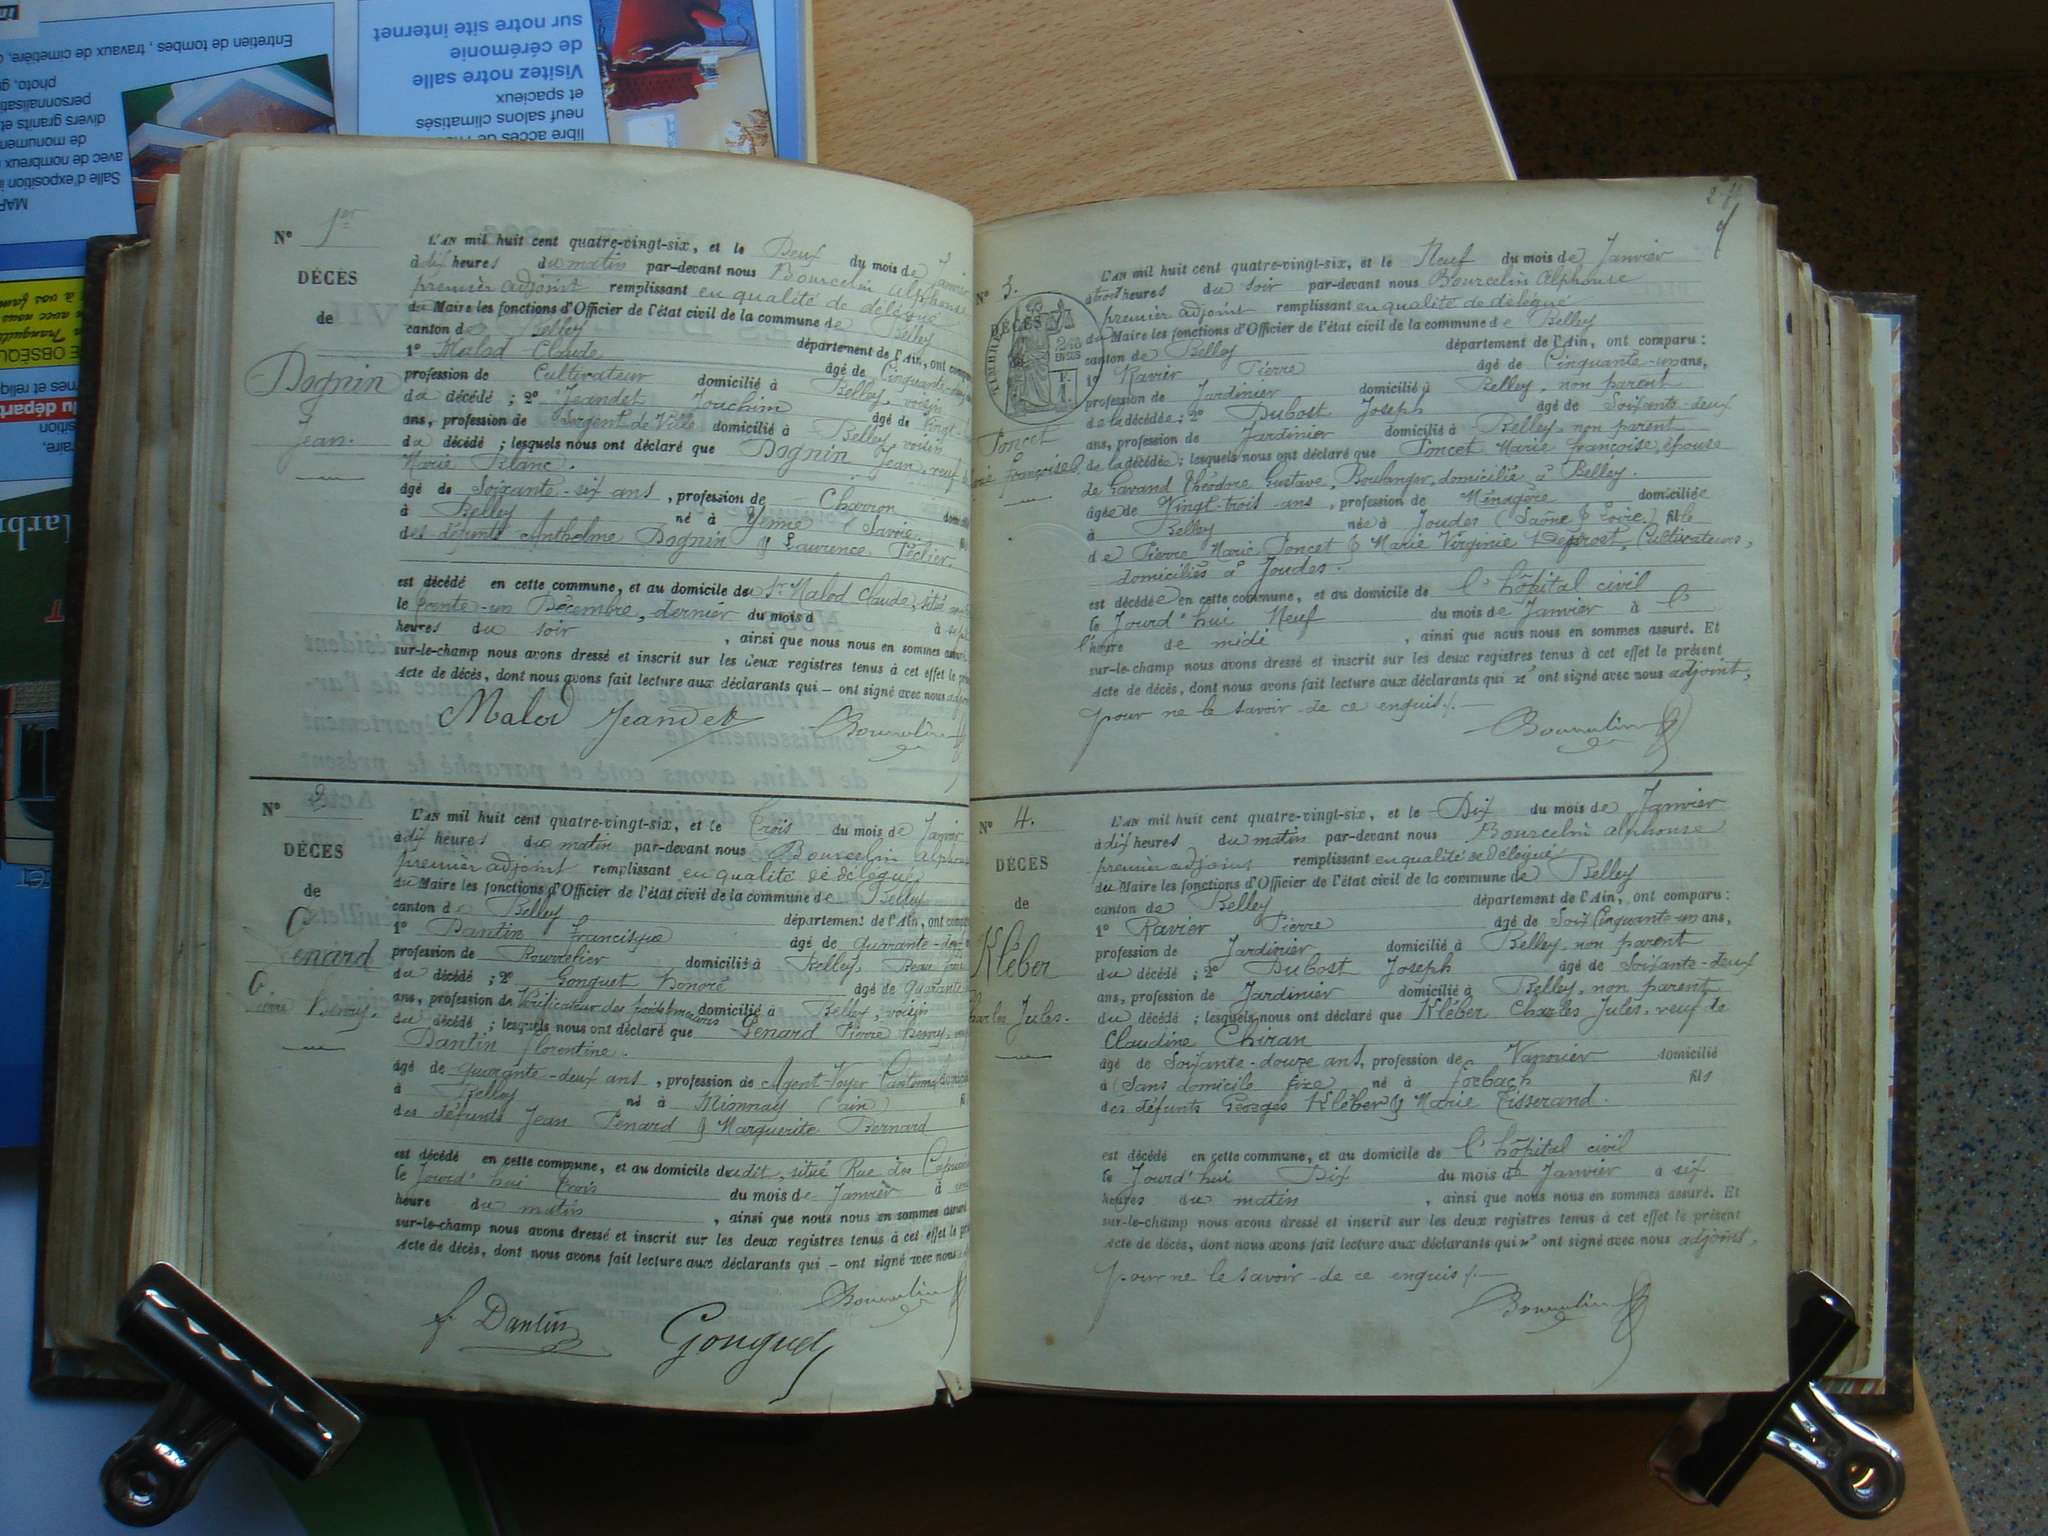 Entretien de tombes, travaux de cimetière,
photo,
personnalisation
divers granits et
de monuments
avec de nombreux
Salle d'exposition
neuf salons climatisés
et spacieux
Visitez notre salle
de cérémonie
sur notre site internet
N° 1er
DÉCÈS
de
Dognin
Jean.
L'AN mil huit cent quatre-vingt-six, et le Deux du mois de Janvier
à dix heures du matin par-devant nous Bourcelin Alphonse
premier adjoint remplissant en qualité de délégué
du Maire les fonctions d'Officier de l'état civil de la commune de Belley
canton de Belley département de l'Ain, ont
1° Malod Claude âgé de Cinquante
profession de Cultivateur domicilié à Belley, voisin
du décédé ; 2° Jeandet Joachim âgé de Vingt
ans, profession de Sergent de Ville domicilié à Belley, voisin
du décédé ; lesquels nous ont déclaré que Dognin Jean, veuf
Marie Blanc.
âgé de Soixante-six ans, profession de Charron
à Belley né à Yenne (Savoie)
des défunts Anthelme Dognin & Laurence Péclier.
est décédé en cette commune, et au domicile du Sr Malod Claude, situé
le trente-un Décembre, dernier du mois d à sept
heures du soir, ainsi que nous nous en sommes assuré.
sur-le-champ nous avons dressé et inscrit sur les deux registres tenus à cet effet le
Acte de décès, dont nous avons fait lecture aux déclarants qui — ont signé avec nous
Malod Jeandet Bourcelin
N° 2
DÉCÈS
de
Penard
Pierre Henry.
L'AN mil huit cent quatre-vingt-six, et le Trois du mois de Janvier
à dix heures du matin par-devant nous Bourcelin Alphonse
premier adjoint remplissant en qualité de délégué
du Maire les fonctions d'Officier de l'état civil de la commune de Belley
canton de Belley département de l'Ain, ont
1° Dantin Francisque âgé de quarante
profession de Bourrelier domicilié à Belley, Beau
du décédé ; 2° Gonguet Honoré âgé de quarante
ans, profession de Vérificateur des poids & mesures domicilié à Belley, voisin
du décédé ; lesquels nous ont déclaré que Penard Pierre Henry,
Dantin Florentine.
âgé de quarante-deux ans, profession de Agent Voyer Cantonal
à Belley né à Mionnay (ain)
des défunts Jean Penard & Marguerite Bernard
est décédé en cette commune, et au domicile dudit, situé Rue des
le Jourd'hui Trois du mois de Janvier à
heure du matin, ainsi que nous nous en sommes assuré.
sur-le-champ nous avons dressé et inscrit sur les deux registres tenus à cet effet le
Acte de décès, dont nous avons fait lecture aux déclarants qui — ont signé avec nous
Bourcelin
f. Dantin Gonguet
N° 3.
DÉCÈS
TIMBRE
Poncet
Françoise
L'AN mil huit cent quatre-vingt-six, et le Neuf du mois de Janvier
à trois heures du soir par-devant nous Bourcelin Alphonse
premier adjoint remplissant en qualité de délégué
du Maire les fonctions d'Officier de l'état civil de la commune de Belley
canton de Belley département de l'Ain, ont comparu :
1° Ravier Pierre âgé de Cinquante-un ans,
profession de Jardinier domicilié à Belley, non parent
de la décédée ; 2° Dubost Joseph âgé de Soixante-deux
ans, profession de Jardinier domicilié à Belley, non parent
de la décédée ; lesquels nous ont déclaré que Poncet Marie françoise, épouse
de Gavand Théodore Gustave, Boulanger, domicilié à Belley.
âgée de Vingt-trois ans, profession de Ménagère domiciliée
à Belley née à Joudes (Saône & Loire) fille
de Pierre Marie Poncet & Marie Virginie Cultivateurs,
domiciliés à Joudes.
est décédée en cette commune, et au domicile de l'hôpital civil
le Jourd'hui Neuf du mois de Janvier à l'
l'heure de midi, ainsi que nous nous en sommes assuré. Et
sur-le-champ nous avons dressé et inscrit sur les deux registres tenus à cet effet le présent
Acte de décès, dont nous avons fait lecture aux déclarants qui n' ont signé avec nous adjoint,
pour ne le savoir de ce enquis/.
Bourcelin
N° 4.
DÉCÈS
de
Kléber
Charles Jules.
L'AN mil huit cent quatre-vingt-six, et le Dix du mois de Janvier
à dix heures du matin par-devant nous Bourcelin alphonse
premier adjoint remplissant en qualité de délégué
du Maire les fonctions d'Officier de l'état civil de la commune de Belley
canton de Belley département de l'Ain, ont comparu :
1° Ravier Pierre âgé de Soix Cinquante-un ans,
profession de Jardinier domicilié à Belley, non parent
du décédé ; 2° Dubost Joseph âgé de Soixante-deux
ans, profession de Jardinier domicilié à Belley, non parent
du décédé ; lesquels nous ont déclaré que Kléber Charles Jules, veuf de
Claudine Chiran
âgé de Soixante-douze ans, profession de Vannier domicilié
à (Sans domicile fixe né à Forbach fils
des défunts Georges Kléber & Marie Tisserand.
est décédé en cette commune, et au domicile de l'hôpital civil
le Jourd'hui Dix du mois de Janvier à six
heures du matin, ainsi que nous nous en sommes assuré. Et
sur-le-champ nous avons dressé et inscrit sur les deux registres tenus à cet effet le présent
Acte de décès, dont nous avons fait lecture aux déclarants qui n' ont signé avec nous adjoint,
pour ne le savoir de ce enquis/.
Bourcelin